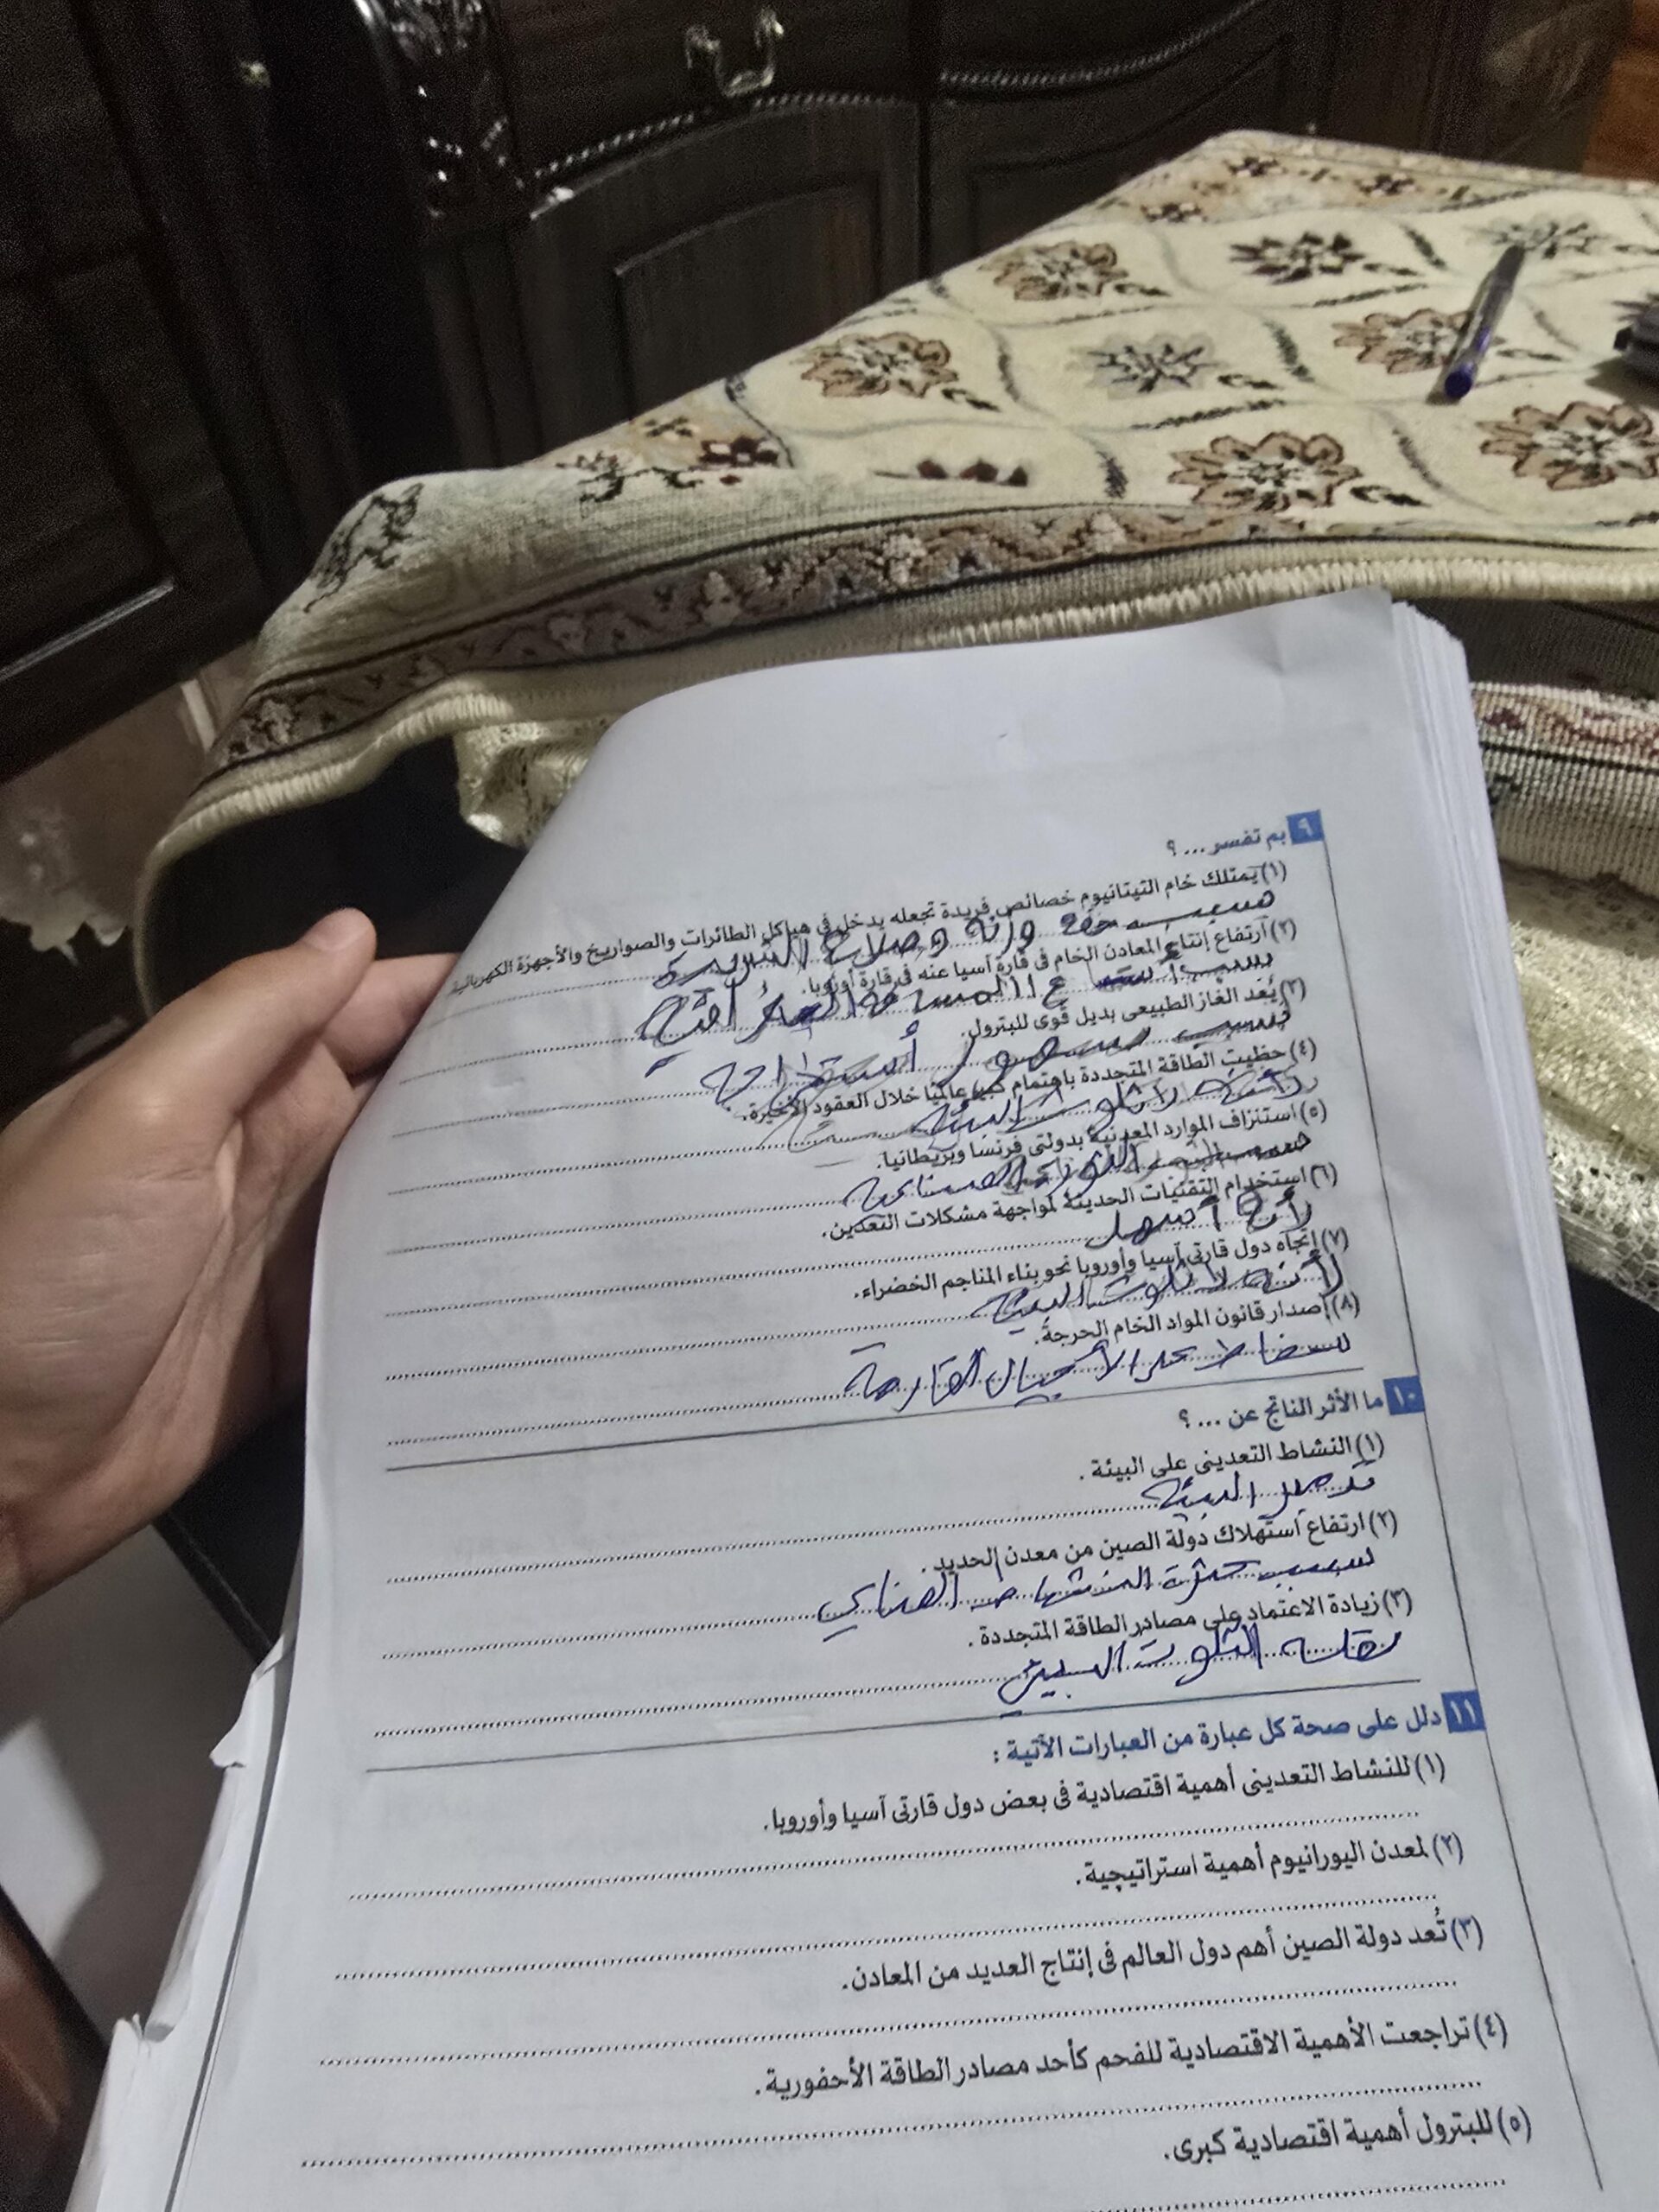 ٩ بم تفسر ... ؟
(١) يمتلك خام التيتانيوم خصائص فريدة تجعله يدخل فى هياكل الطائرات والصواريخ والأجهزة الكهربائية
بسبب خفة وزنة وصلابة الشديدة
(٢) ارتفاع إنتاج المعادن الخام فى قارة آسيا عنه فى قارة أوروبا.
بسبب المساحة الجغرافية
(٣) يُعد الغاز الطبيعى بديل قوى للبترول.
بسبب سهولة أستخراجة
(٤) حظيت الطاقة المتجددة باهتمام كبير عالميًا خلال العقود الأخيرة.
لأنها لا تلوث البيئة
(٥) استنزاف الموارد المعدنية بدولتى فرنسا وبريطانيا.
بسبب الثورة الصناعية
(٦) استخدام التقنيات الحديثة لمواجهة مشكلات التعدين.
لأنها أسهل
(٧) اتجاه دول قارتى آسيا وأوروبا نحو بناء المناجم الخضراء.
لأنها لا تلوث البيئة
(٨) إصدار قانون المواد الخام الحرجة.
للحفاظ على الأجيال القادمة
١٠ ما الأثر الناتج عن ... ؟
(١) النشاط التعدينى على البيئة .
تدمير البيئة
(٢) ارتفاع استهلاك دولة الصين من معدن الحديد .
بسبب كثرة النشاط الصناعي
(٣) زيادة الاعتماد على مصادر الطاقة المتجددة .
لقلة التلوث البيئي
١١ دلل على صحة كل عبارة من العبارات الآتية :
(١) للنشاط التعدينى أهمية اقتصادية فى بعض دول قارتى آسيا وأوروبا .
(٢) لمعدن اليورانيوم أهمية استراتيجية .
(٣) تُعد دولة الصين أهم دول العالم فى إنتاج العديد من المعادن.
(٤) تراجعت الأهمية الاقتصادية للفحم كأحد مصادر الطاقة الأحفورية .
(٥) للبترول أهمية اقتصادية كبرى.